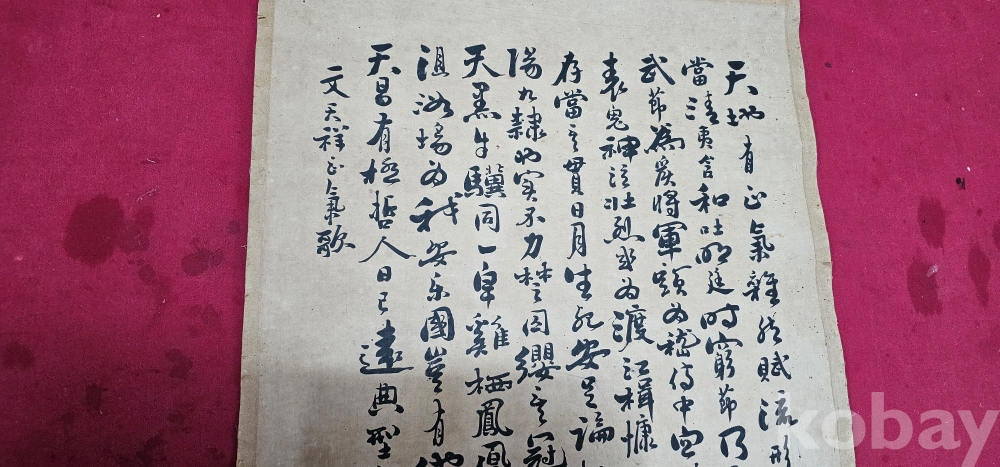 天地有正氣雜然賦流形
當清夷含和吐明廷時窮節乃
武節為嚴將軍頭為嵇侍中血
表鬼神泣壯烈或為渡江楫慷
存當其貫日月生死安足論
陽九隸也實不力楚囚纓其冠
天黑牛驥同一皁雞栖鳳凰
沮洳場為我安樂國豈有他
天曷有極哲人日已遠典型
文天祥正氣歌
kobay